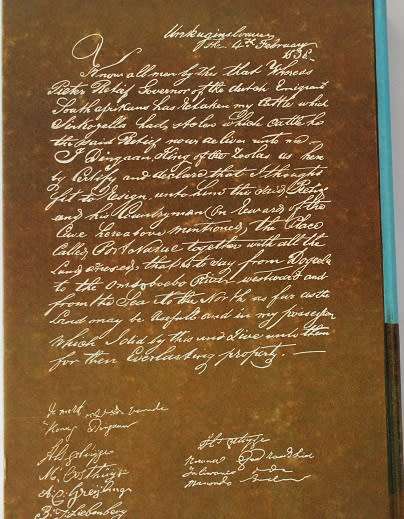 Unkuginsloave
the 4th February
1838
Know all men by this that Whereas
Pieter Retief Governor of the dutch Emigrant
South afrikans has Retaken my Cattle which
Sinkonyella had stolen which Cattle he
the said Retief now deliver unto me
I Dingaan, King of the Zoolas as here
by Certify and declare that I thought
fit to Resign unto him the said Retief
and his Countryman (on Reward of the
Case hereabove mentioned) the Place
Called Port Natal together with all the
Land annexed that is to say from Dogela
to the Omsoboebo River westward and
from the Sea to the North as far as the
Land may be usefull and in my possession
Which I did by this and Give unto them
for their Everlasting property. —
De merk van de
Koning Dingaan
M. Oosthuizen
A. C. Greyling
B. J. Liebenberg